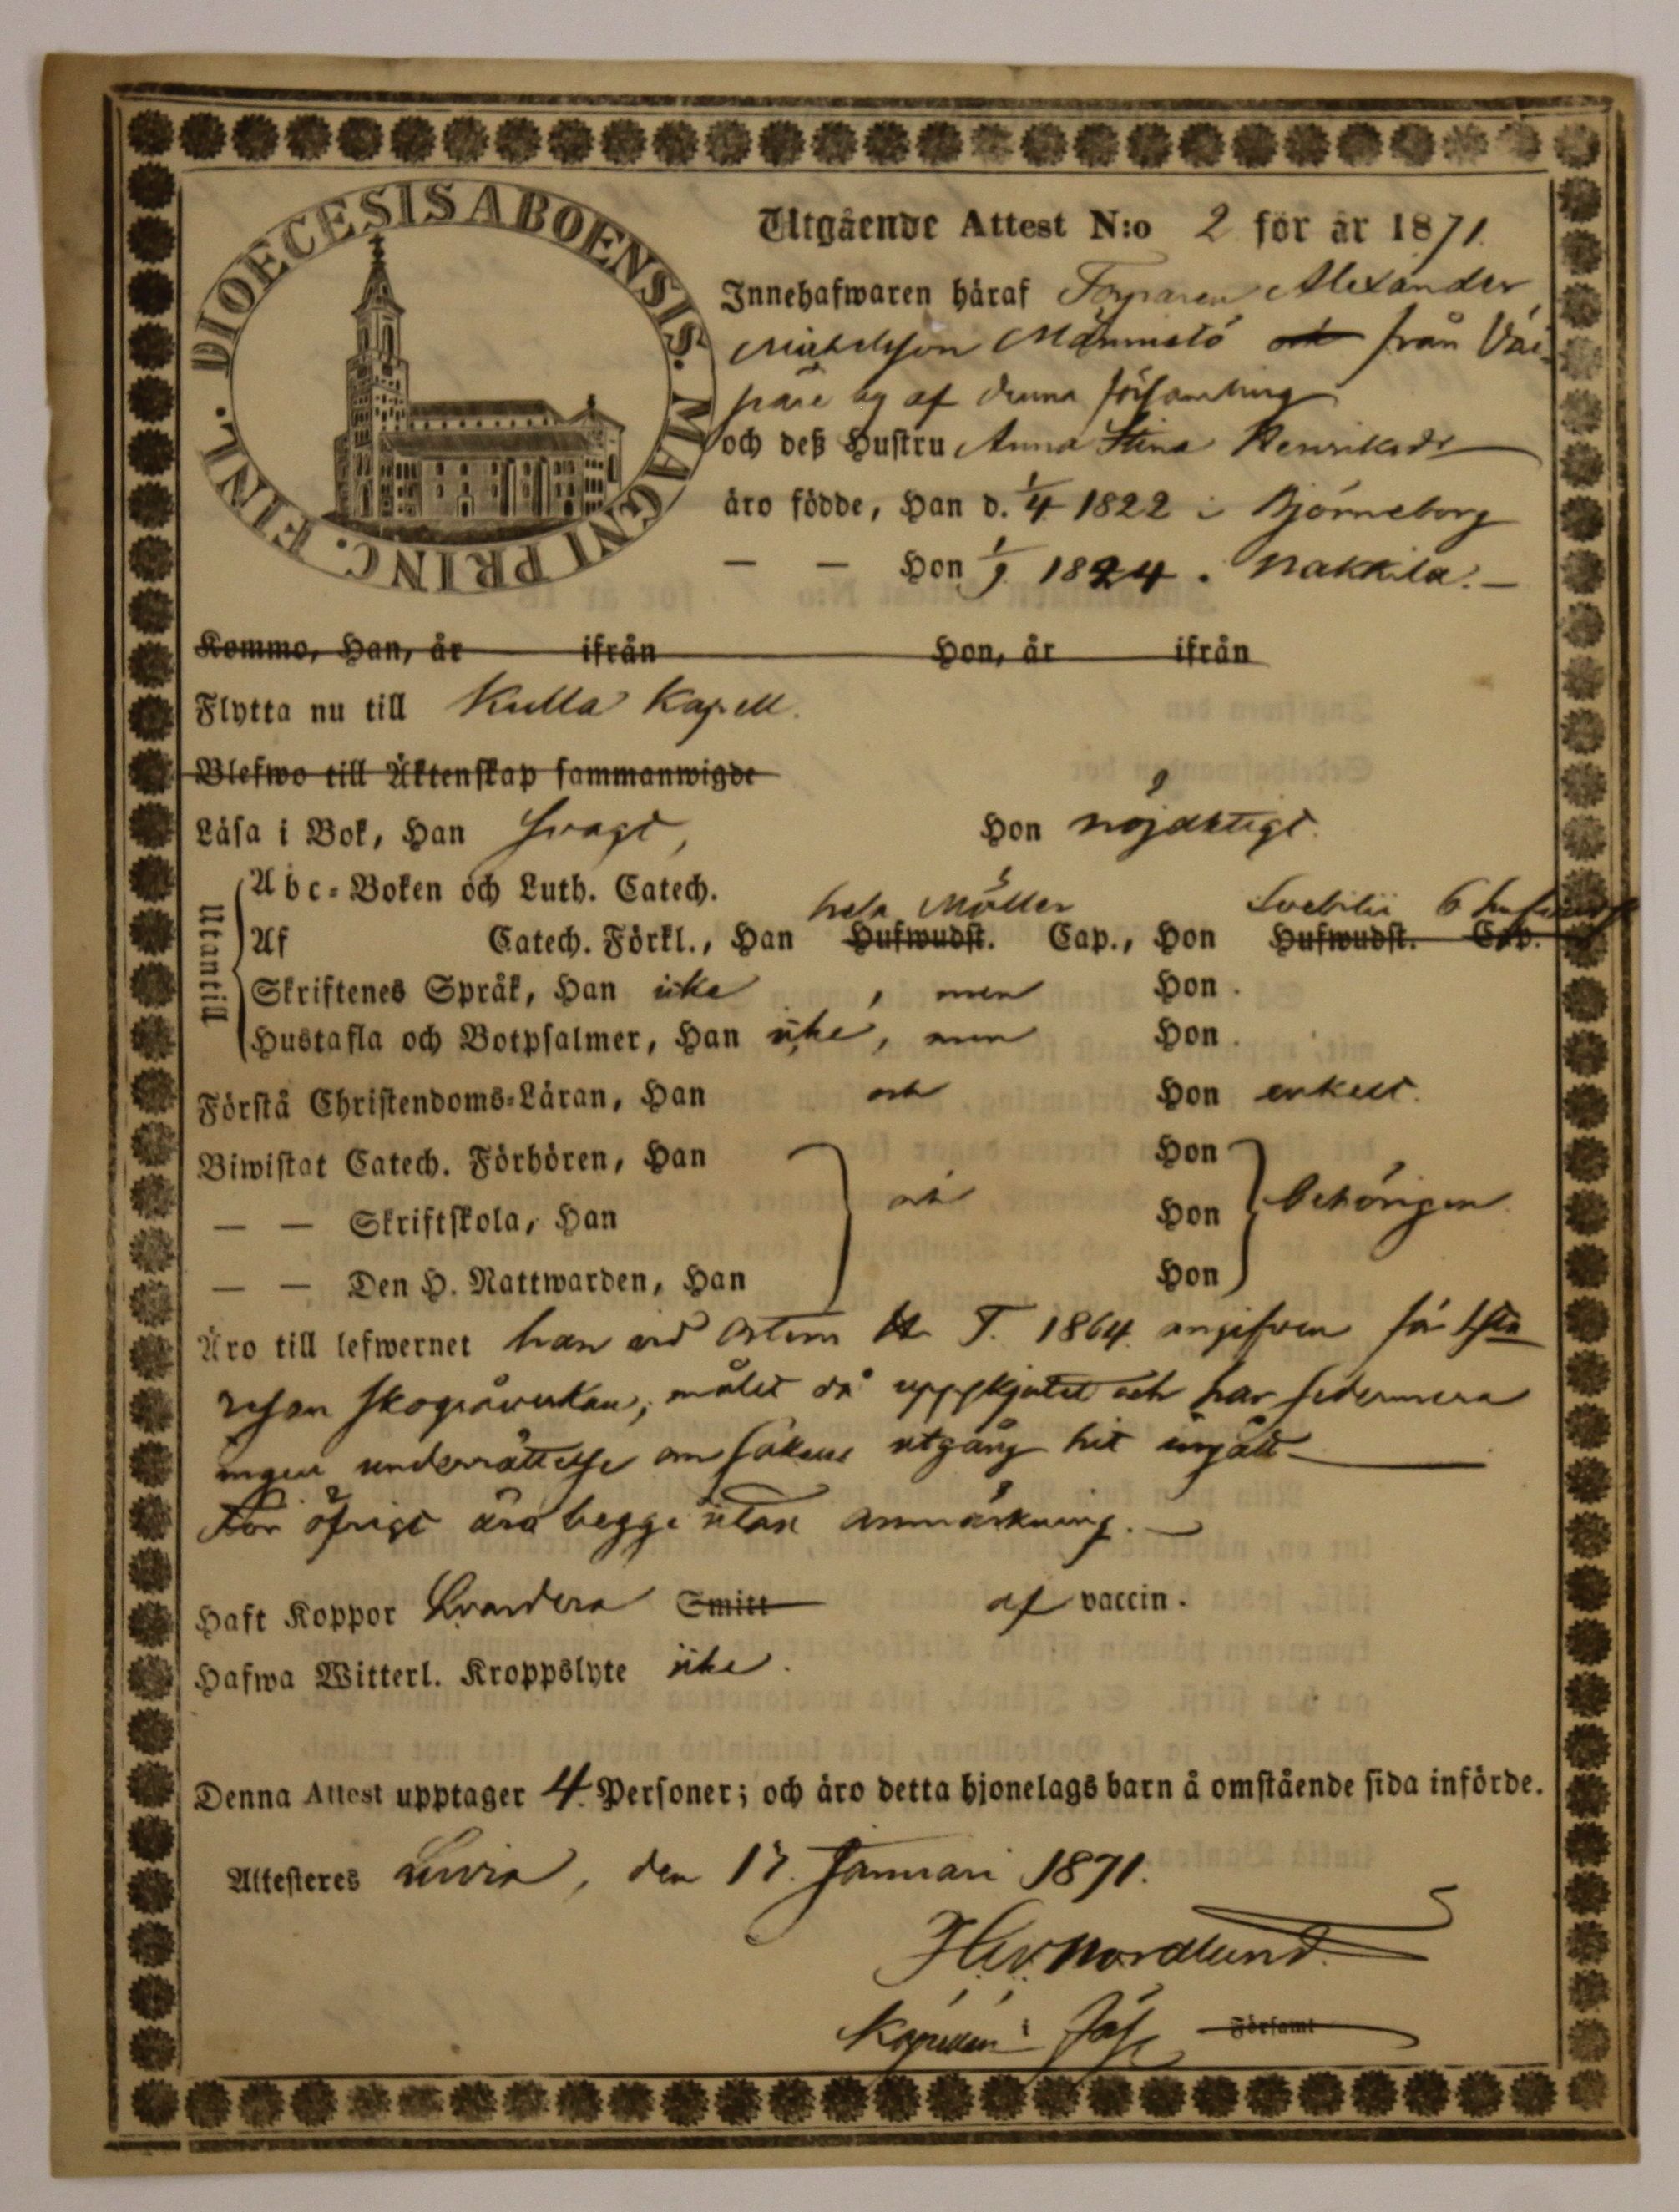 DIOECESIS ABOENSIS. MAGNI PRINC. FINL.
Utgående Attest N:o 2 för år 1871.
Innehafwaren häraf Torparen Alexander
Michelsson Männistö och från
by af denna församling
och deß Hustru Anna Stina Henriksdr
äro födde, Han d. 1/4 1822 i Björneborg
— — Hon 1/9 1824. Nakkila. —
Kommo, Han, år ifrån Hon, år ifrån
Flytta nu till Kulla Kapell.
Blefwo till Äktenskap sammanwigde
Läsa i Bok, Han svagt, Hon nöjaktigt.
Utantill
Abc-Boken och Luth. Catech.
hela Möller Svebilii 6
Af Catech. Förkl., Han Hufwudst. Cap., Hon Hufwudst. Cap.
Skriftenes Språk, Han icke, men Hon.
Hustafla och Botpsalmer, Han icke, men Hon.
Förstå Christendoms-Läran, Han och Hon enkelt.
Biwistat Catech. Förhören, Han Hon
— — Skriftskola, Han och Hon behörigen
— — Den H. Nattwarden, Han Hon
Äro till lefwernet han vid T. 1864 angifven för 1sta
resan skogsåverkan, målet då uppskjutet och har sedermera
ingen underrättelse om sakens utgång hit ingått
För öfrigt äro begge utan anmärkning. —
Haft Koppor Smitt af vaccin.
Hafwa Witterl. Kroppslyte icke.
Denna Attest upptager 4 Personer; och äro detta hjonelags barn å omstående sida införde.
Attesteres Luvia, den 17. Januari 1871.
Nordlund.
Kapellan i Församl